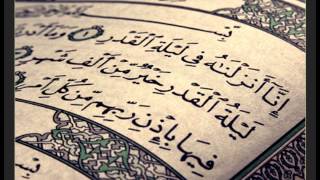 بِسْمِ
إِنَّا أَنزَلْنَٰهُ فِى لَيْلَةِ ٱلْقَدْرِ ١ وَمَا
لَيْلَةُ ٱلْقَدْرِ خَيْرٌ مِّنْ أَلْفِ شَهْرٍ
فِيهَا بِإِذْنِ رَبِّهِم مِّن كُلِّ أَمْرٍ